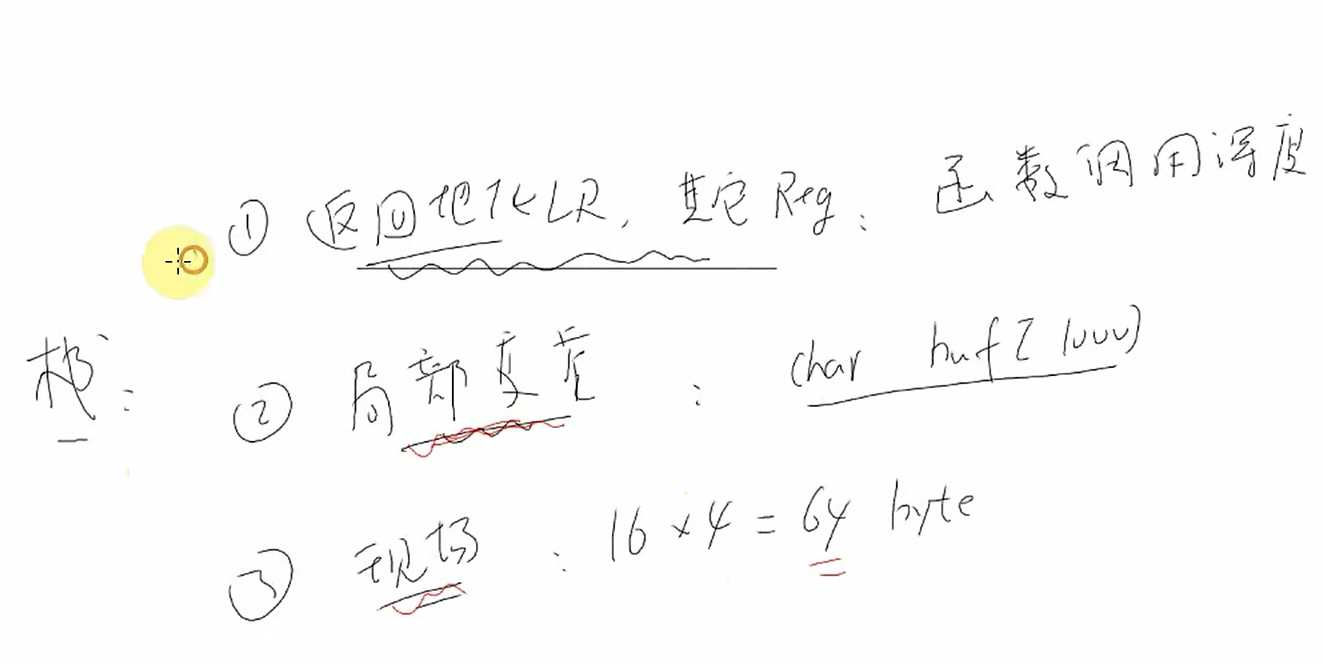 ① 返回地址LR, 其它Reg: 函数调用深度
栈:
② 局部变量 : char buf[1000]
③ 现场 : 16×4=64 byte